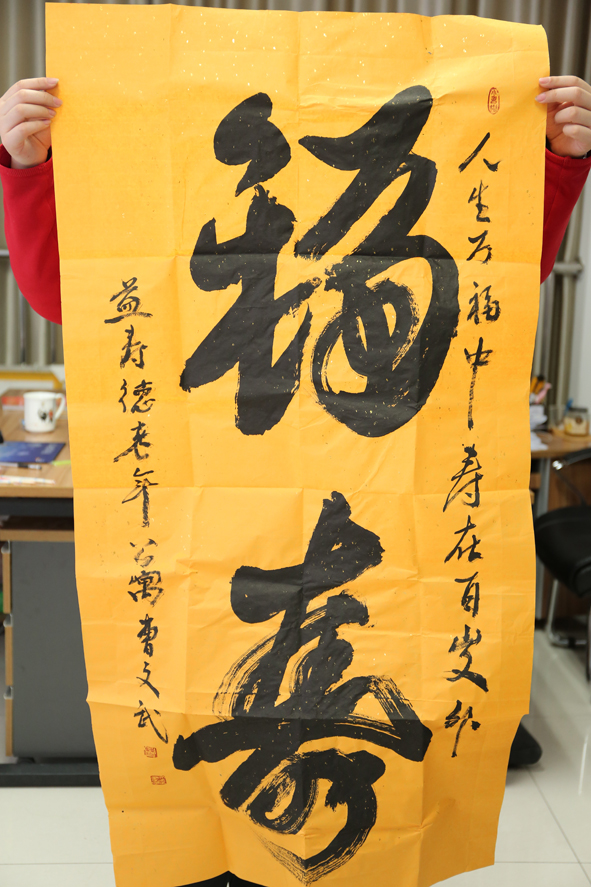 人生万福中寿在百岁外
福寿
益寿德老年公寓曹文武